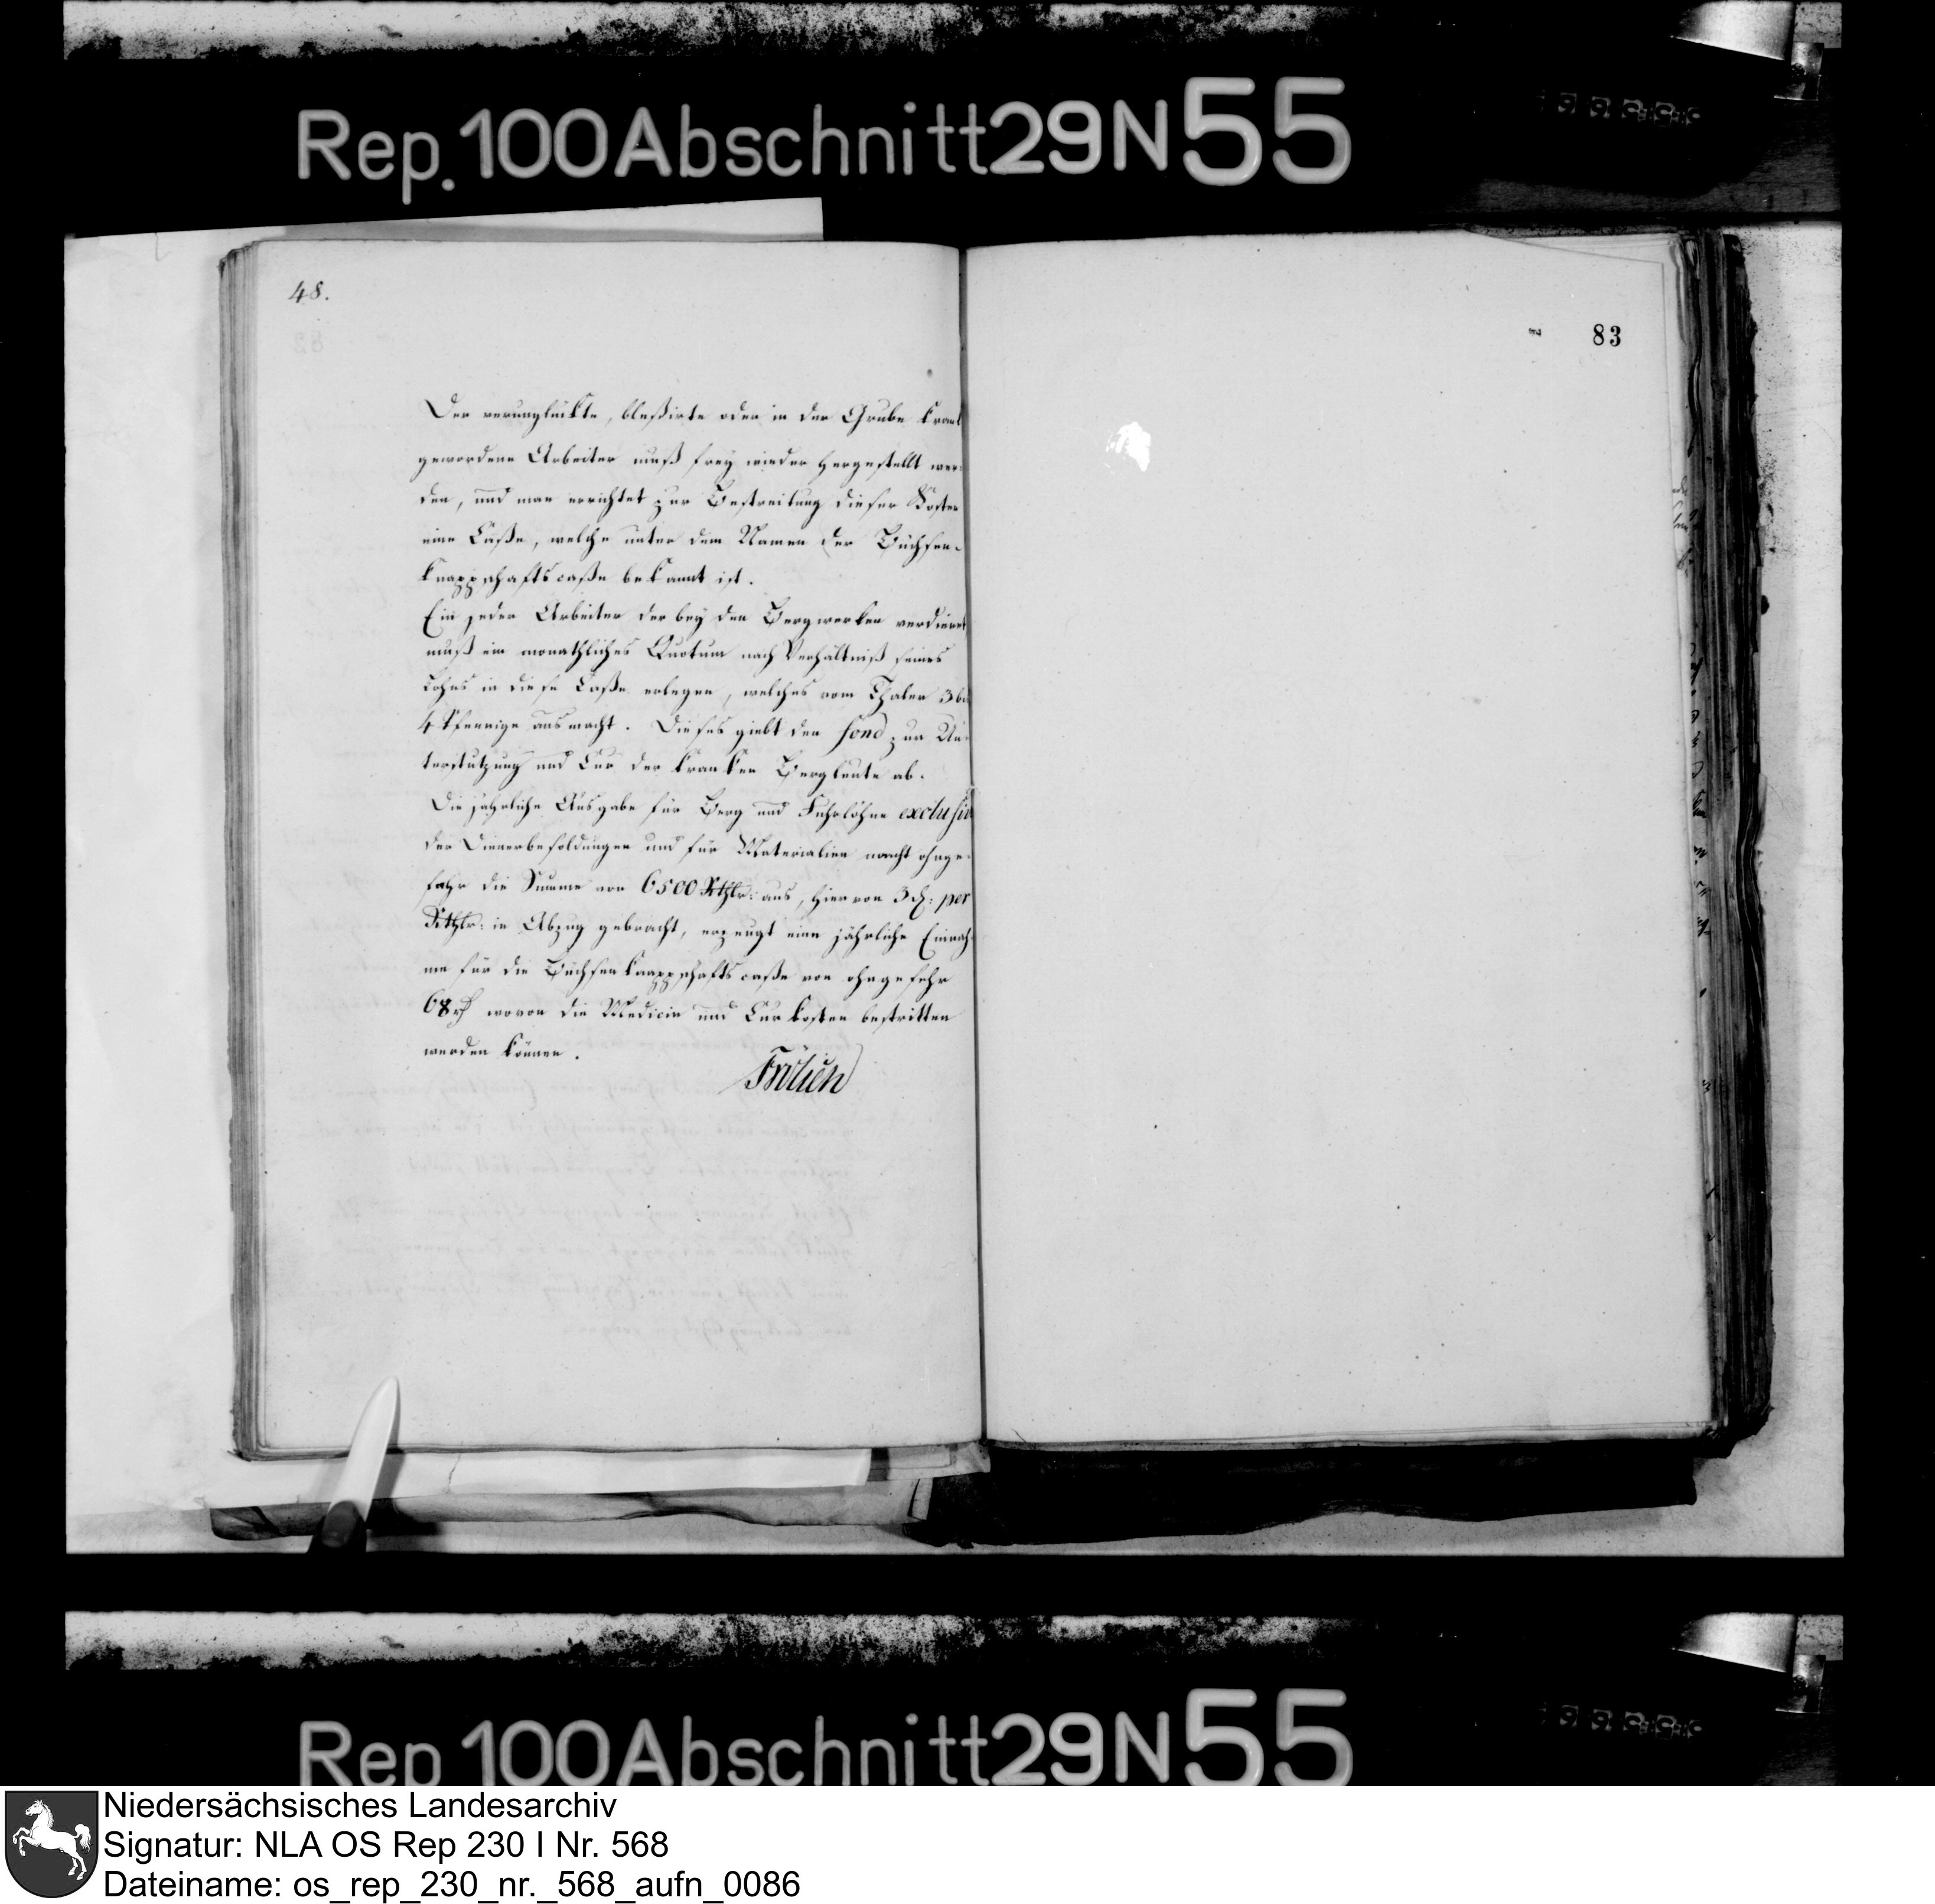 Rep.100Abschnitt29N55
48.
83
Der verunglückte, bleßirte oder in der Grube krank
gewordene Arbeiter muß frey wieder hergestellt wer¬
den, und man errichtet zur Bestreitung dieser Kosten
eine Caße, welche unter dem Namen der Büchsen-
knappschaftscaße bekannt ist.
Ein jeder Arbeiter der bey den Bergwerken verdienet,
muß ein monathliches Quotum nach Verhältniß seines
Lohns in diese Caße erlegen, welches vom Thaler 3 bis
4 Pfennige ausmacht. Dieses giebt den fond zur Un¬
terstützung und Cur der kranken Bergleute ab.
Die jährliche Ausgabe für Berg und Fuhrlöhne exclusive
der Dienerbesoldungen und für Materialien macht ohnge¬
fähr die Summe von 6500 Rthlr: aus, hiervon 3 ₰: per
Rthlr: in Abzug gebracht, erzeugt eine jährliche Einnah¬
me für die Büchsenknappschaftscaße von ohngefehr
68 rh wovon die Medicin und Curkosten bestritten
werden können.
Frölich
Rep 100Abschnitt29N55
Niedersächsisches Landesarchiv
Signatur: NLA OS Rep 230 I Nr. 568
Dateiname: os_rep_230_nr._568_aufn_0086